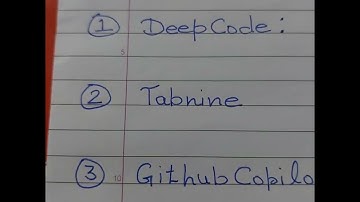 ① DeepCode:
5
② Tabnine
③ 10 GithubCopilo